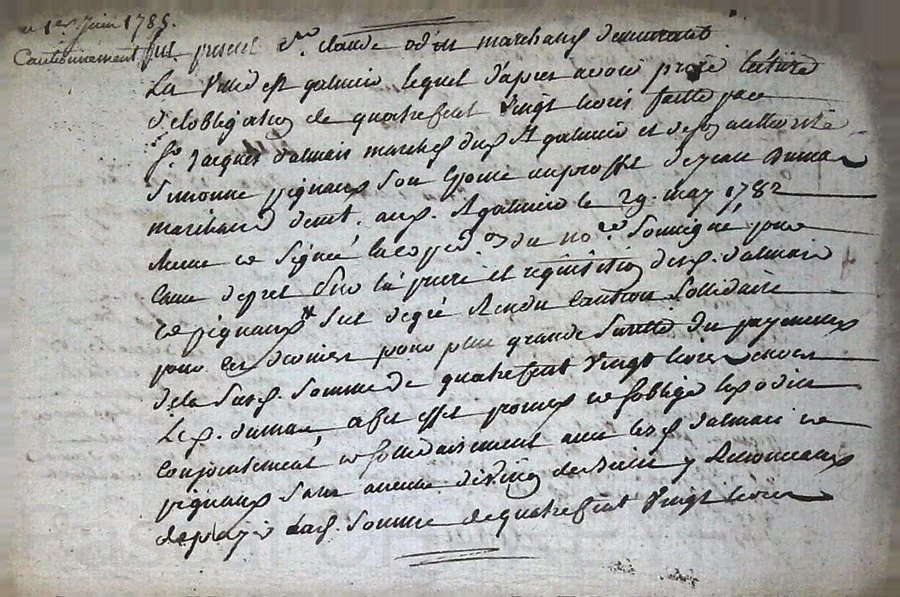 1er Juin 1785.
Cautionnement fut present Sr. claude odin marchand demeurant
La Ville de St galmier lequel d'apres avoir prise lecture
d'élobligation de quatre cent vingt livres faitte par
Sr. Jacques dalmais march. St galmier et de son authorité
Simonne pignaux son Epouse au proffit de jean dumas
marchand demt. aud. St galmier le 29. may 1782
ce signée no.re Soussigné pour
Cause de pret Sur la priere et requisition desd. dalmais
ce pignaux Sest degré Rendu Caution Sollidaire
pour ces derniers pour plus grande Suretté du payement
de la Susd. Somme de quatre cent Vingt livres envers
Led. dumas a cet effet promet ce soblige led odin
conjointement ce sollidairement avec lesd dalmais ce
pignaux Sans aucune division de discution y Renonceant
de payer lad. Somme de quatre cent Vingt livres